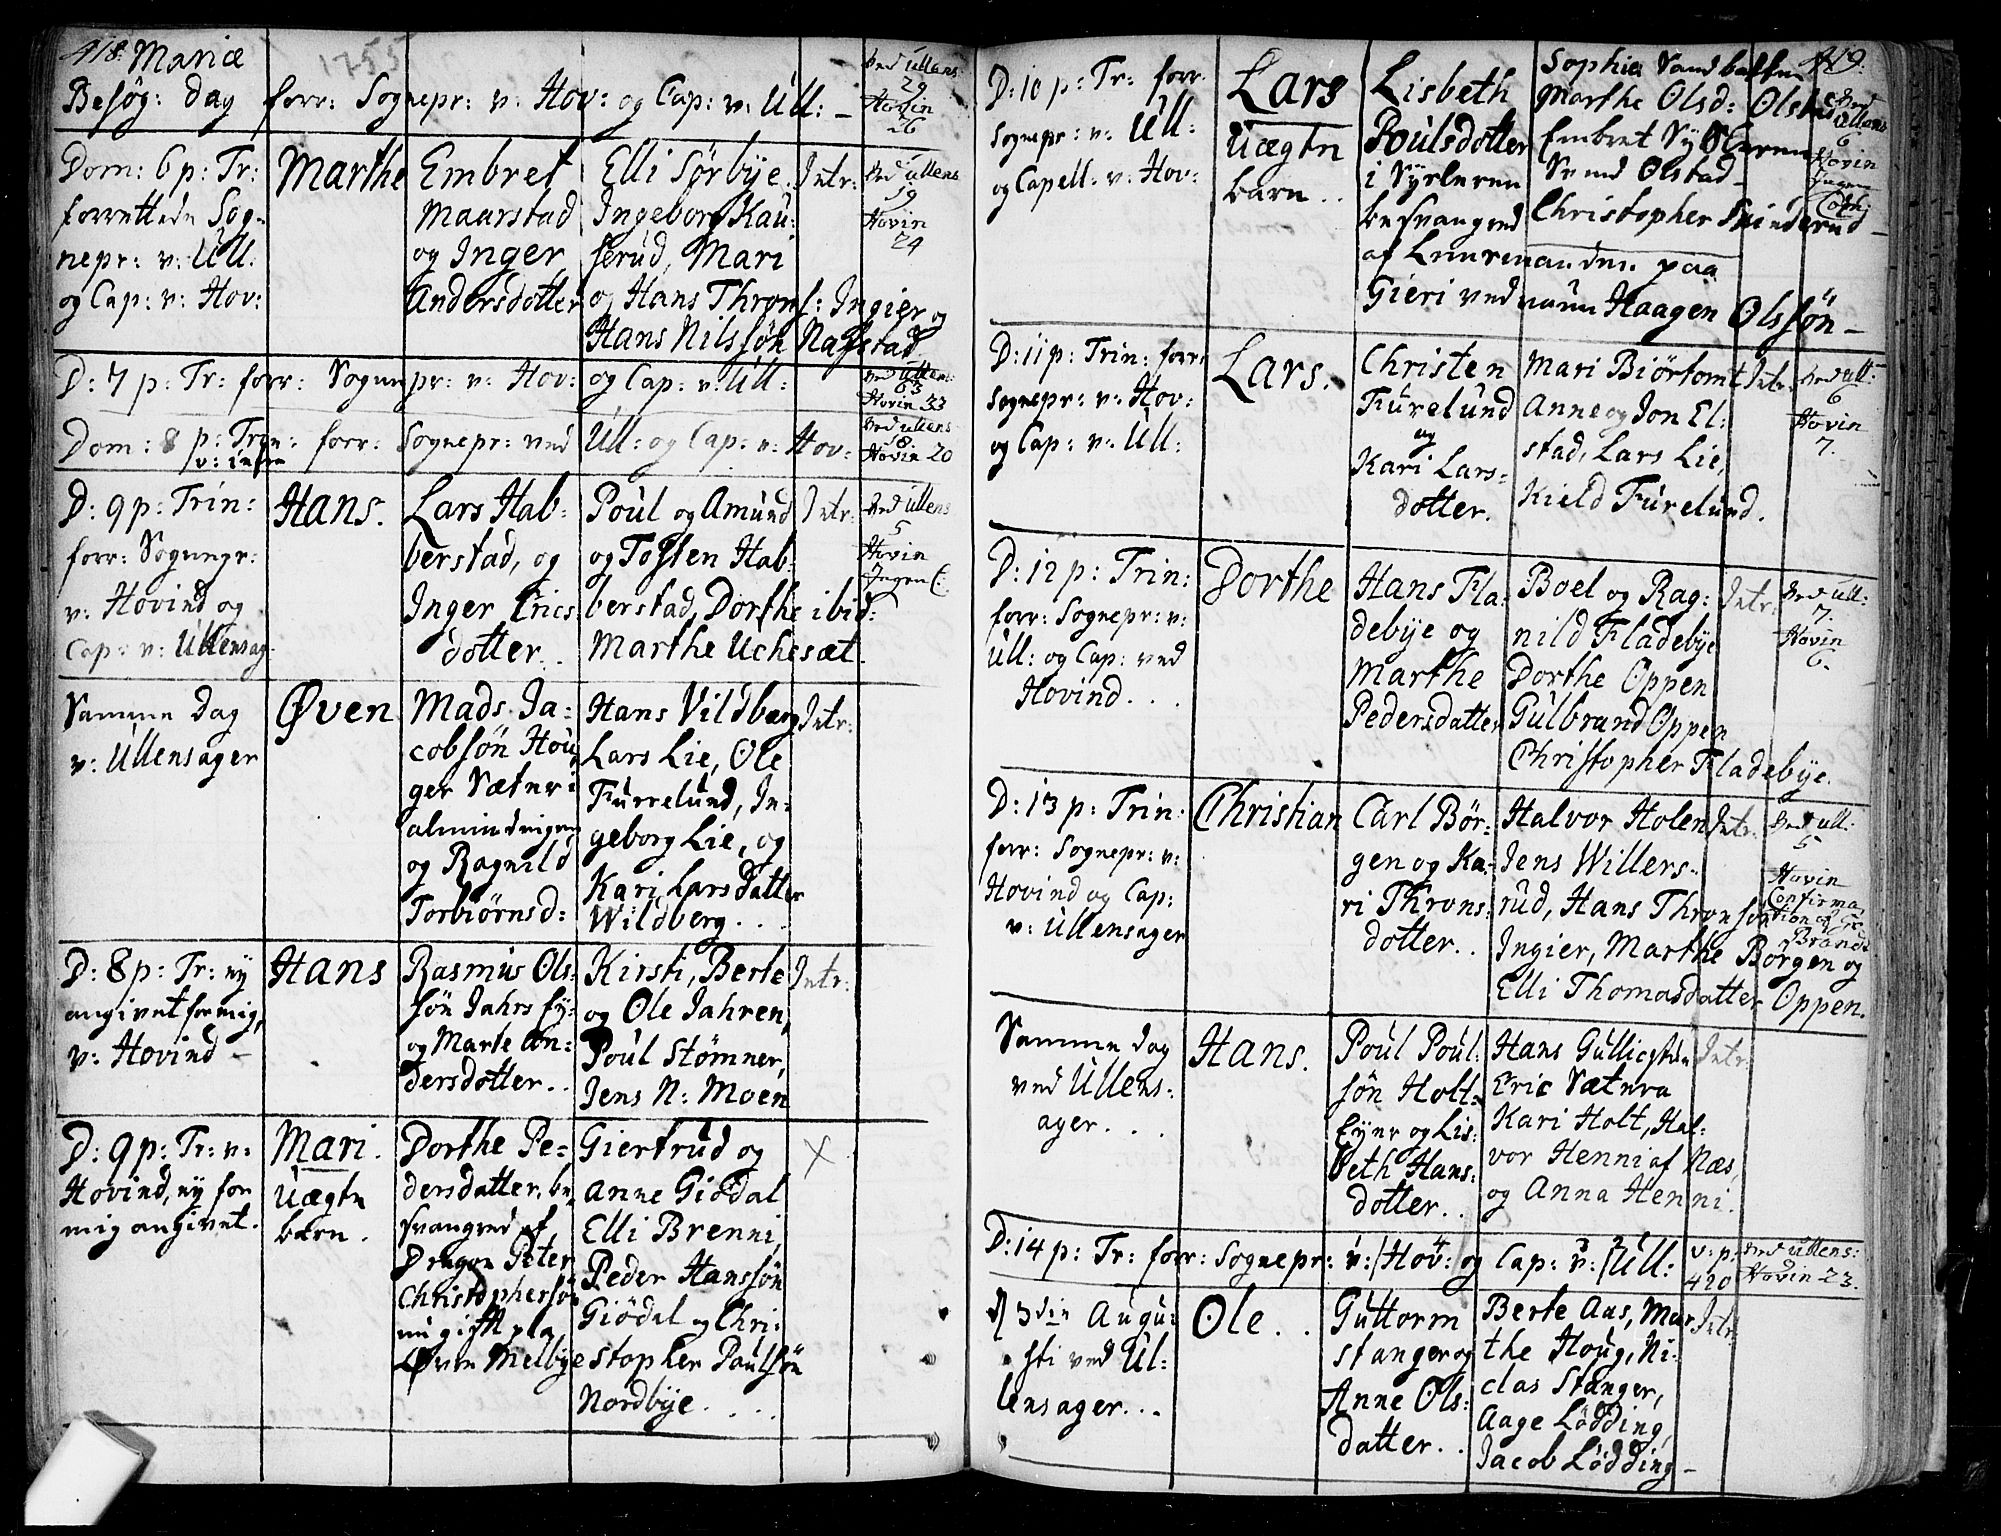 418. Mariæ 1755
Besøg: dag forr: Sognepr: v: Hov: og Cap: v: Ull: –
Ved Ullens:
29
Hovin
26
Dom: 6 p: Tr:
forrettede Sog-
nepr: v: Ull:
og Cap: v: Hov:
Marthe
Embret
Maarstad
og Inger
Andersdotter
Elli Sørbye
Ingeborg Kau-
serud, Mari
og Hans Throns: Ingier og
Hans Nilssøn Nafstad
Intr:
Ved Ullens
19
Hovin
24
D: 7 p: Tr: forr: Sognepr: v: Hov: og Cap: v: Ull:
Ved Ullens:
63
Hovin 33
Dom: 8 p: Trin: forr: Sognepr: ved Ull: og Cap: v: Hov:
v: infra
Ved Ullens
8
Hovin 20
D: 9 p: Trin:
forr: Sognepr:
v: Hovind og
Cap: v: Ullensag:
Hans.
Lars Hab-
berstad, og
Inger Erics
dotter..
Poul og Amund
og Tosten Hab-
berstad, Dorthe ibid:
Marthe Uchesæt.
Intr:
Ved Ullens
5
Hovin
Ingen C:
Samme dag
v: Ullensager
Øven
Mads Ja-
cobsøn Hou
ger Sætneri
almindingen
og Ragnild
Torbiørnsd:
Hans Vildberg
Lars Lie, Ole
Furrelund, In-
geborg Lie, og
Kari Larsdatter
Wildberg...
Intr:
D: 8 p: Tr: ny
angivet for mig,
v: Hovind –
Hans
Rasmus Ols-
søn Jahrs Ey:
og Marte An-
dersdotter..
Kirsti, Berte
og Ole Jahren,
Poul Stømner,
Jens N: Moen
Intr:
D: 9 p: Tr: v:
Hovind, ny for
mig angivet.
Mari.
Uægte
barn.
Dorthe Pe-
dersdatter, be-
svangred af
Dragon Peter
Christophersøn
nu gift paa
Øvre Melbye
Giertrud og
Anne Giødal
Elli Brenni,
Peder Hanssøn
Giödal og Chri-
stopher Paulsøn
Nordbye....
X
419.
D: 10 p: Tr: forr:
Sognepr: v: Ull:
og Capell: v: Hov:
Lars
Uægte
barn..
Lisbeth
Poulsdotter
i Syrleren
besvangred
af Leuremanden paa
Gieri ved navn Haagen Olssøn –
Sophie Sandbatten
Marthe Olsd: Olstad
Embret Syrleren
Svend Olstad –
Christopher Suinderud –
Ved
Ullens
6
Hovin
Ingen
Com:
D: 11 p: Trin: forr:
Sognepr: v: Hov:
og Cap: v: Ull:
Lars.
Christen
Furelund
og
Kari Lars-
dotter.
Mari Biörtomt
Anne og Jon El-
stad, Lars Lie,
Kield Furelund.
Intr:
Ved Ull:
6
Hovin
7.
D: 12 p: Trin:
forr: Sognepr: v:
Ull: og Cap: ved
Hovind...
Dorthe
Hans Fla-
debye og
Marthe
Pedersdatter
Boel og Rag-
nild Fladebye
Dorthe Oppen
Gulbrand Oppen
Christopher Fladebye.
Intr:
Ved Ull:
7.
Hovin
6.
D: 13 p: Trin:
forr: Sognepr: v:
Hovind og Cap:
v: Ullensager
Christian
Carl Bør-
gen og Ka-
ri Throns-
dotter..
Halvor Holen
Jens Willers-
rud, Hans Thronsøn
Ingier, Marthe Borgen og
Elli Thomasdatter Oppen.
Intr:
Ved Ull:
5
Hovin
Confirma-
tion af Hr:
Brandt
Samme dag
ved Ullens-
ager...
Hans.
Poul Poul-
søn Holt-
Eyer og Lis-
beth Hans-
dotter..
Hans Gullichstuen
Eric Sætnra
Kari Holt, Hal-
vor Henni af Næs,
og Anna Henni.
Intr:
D: 14 p: Tr: forr: Sognepr: v: Hov: og Cap: v: Ull:
v: p:
420
Ved Ullens:
Hovin 23.
d 3die Augu-
sti ved Ul-
lensager...
Ole..
Guttorm
Stanger og
Anne Ols-
datter..
Berte Aas, Mar
the Houg, Ni-
clas Stanger,
Aage Lödding,
Jacob Lödding –
Intr: